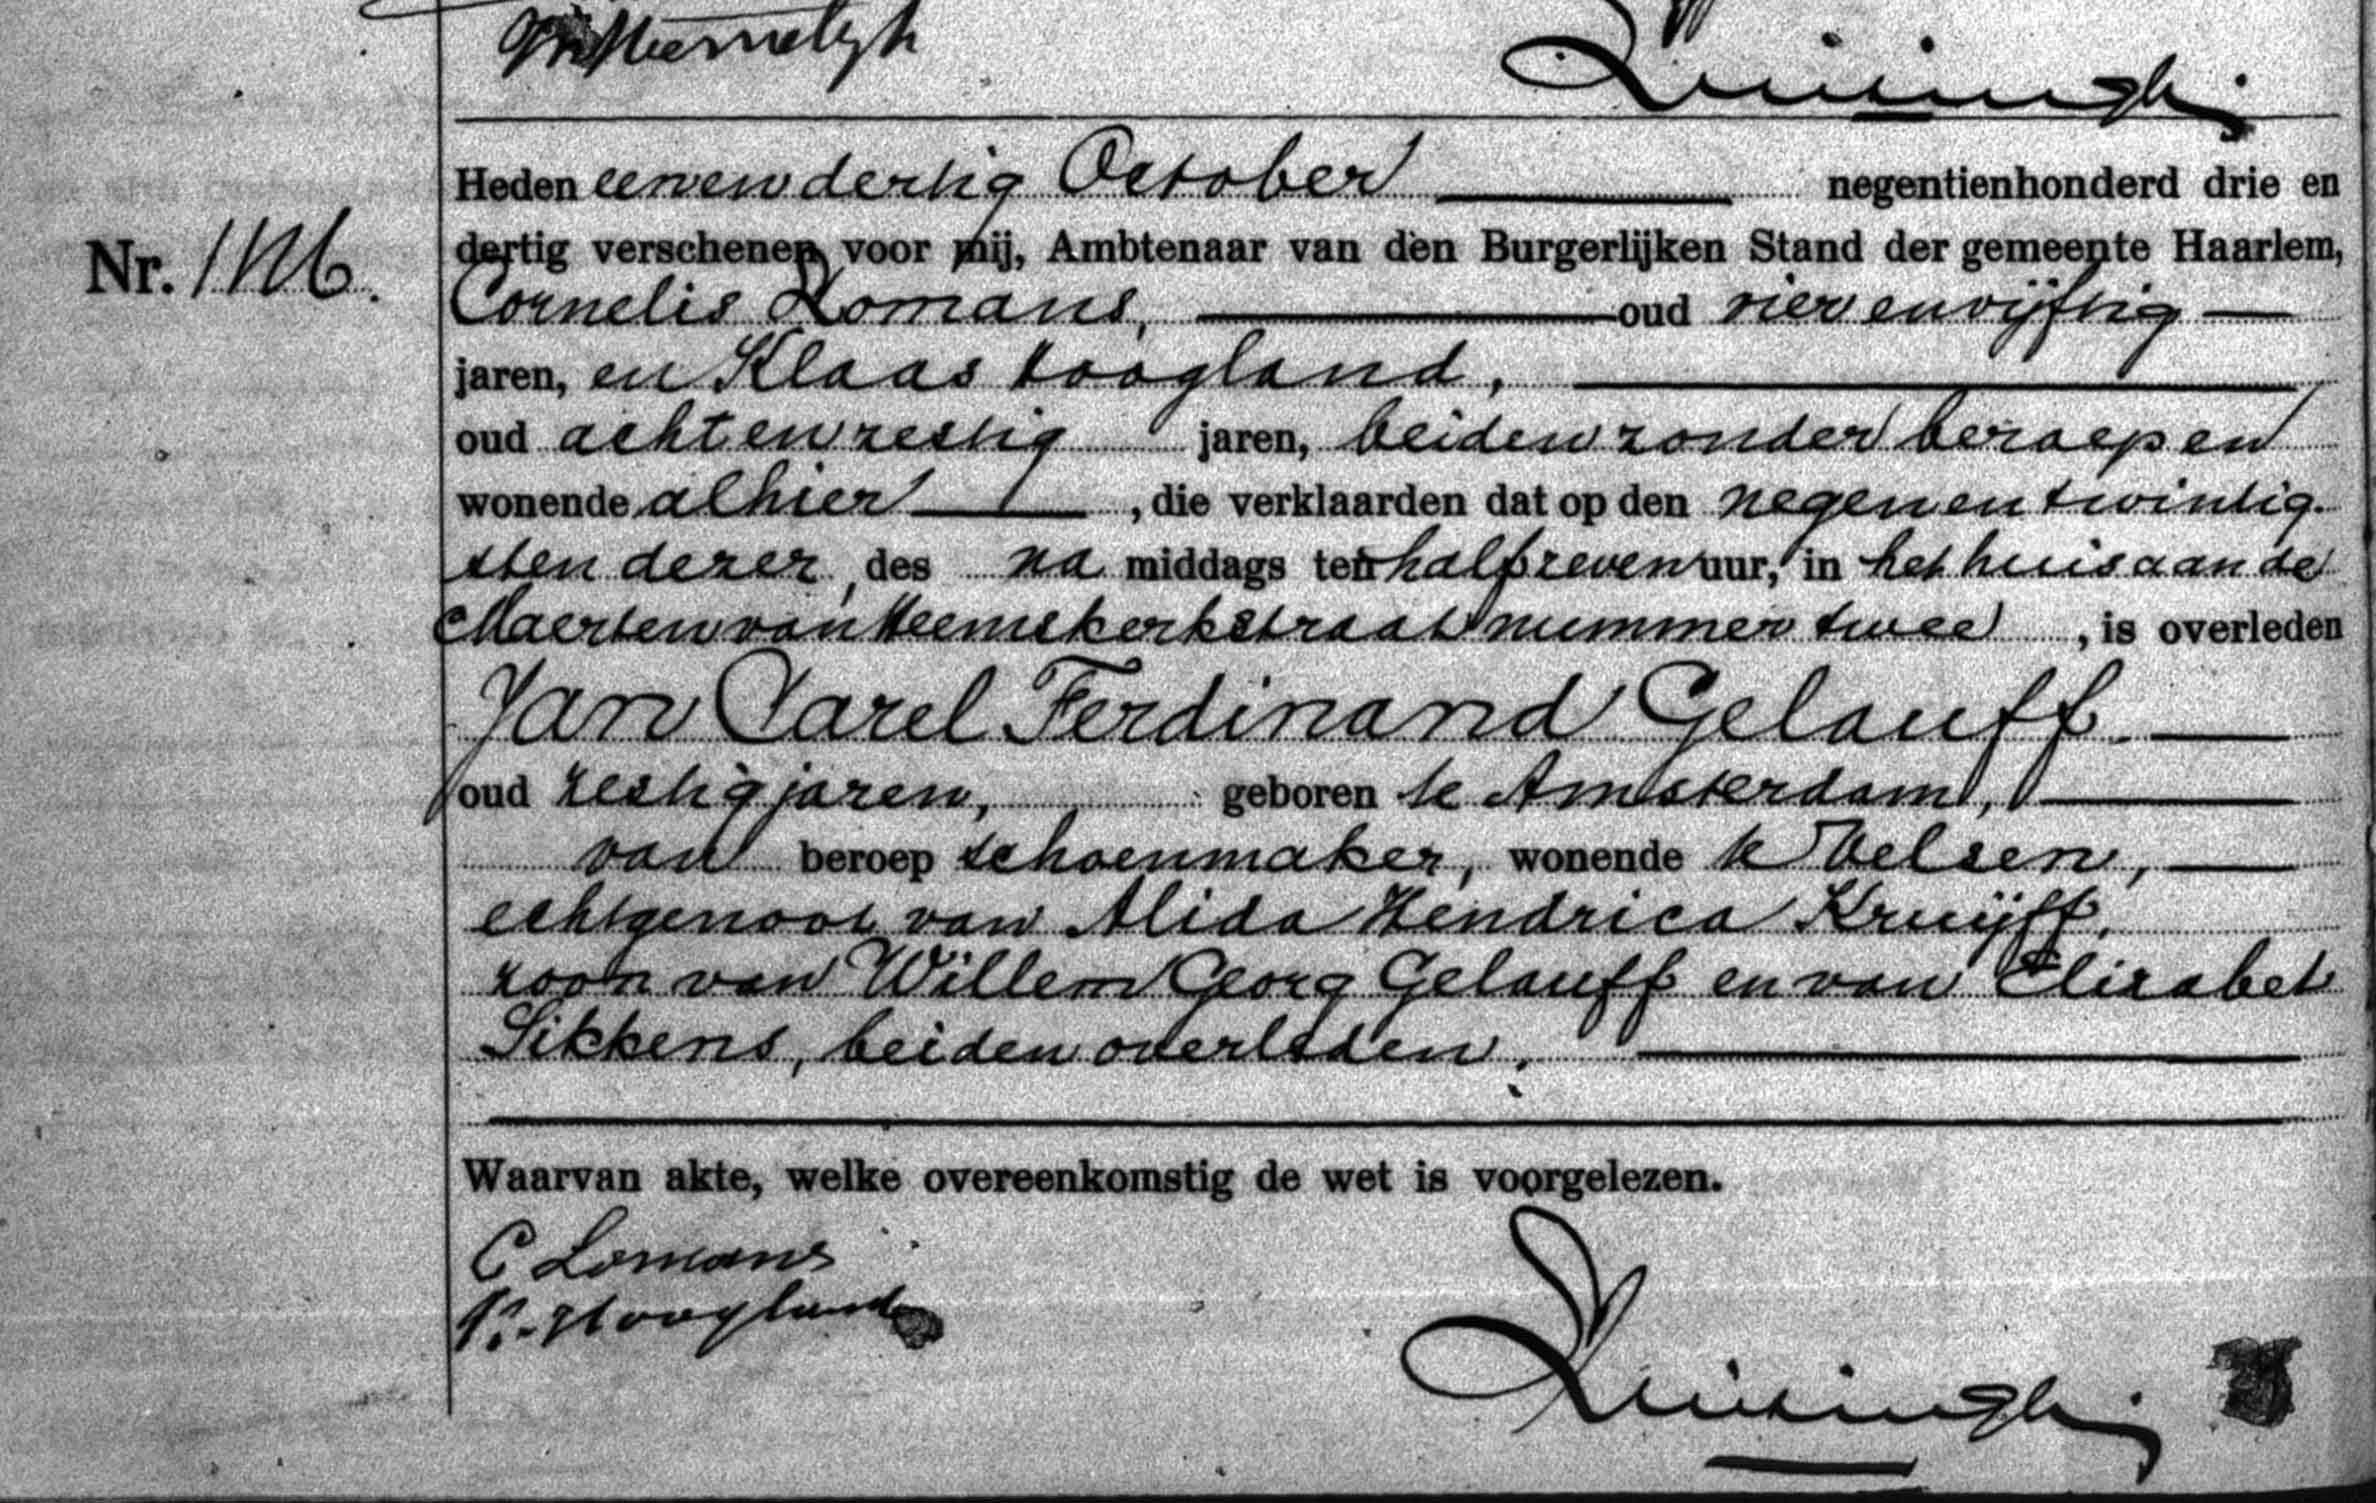 Heden eenendertig October negentienhonderd drie en
dertig verschenen voor mij, Ambtenaar van den Burgerlijken Stand der gemeente Haarlem,
Nr.
Cornelis Lomans, oud vierenvijftig
jaren, en Klaas Hoogland,
oud achtenzestig jaren, beiden zonder beroep en
wonende alhier, die verklaarden dat op den negenentwintig-
sten dezer, des na middags ten half zeven uur, in het huis aan de
Maerten van Heemskerkstraat nummer twee, is overleden
Jan Carel Ferdinand Gelauff.
oud zestig jaren, geboren te Amsterdam,
van beroep schoenmaker, wonende te Velsen,
echtgenoot van Alida Hendrica Kruijff,
zoon van Willem Georg Gelauff en van Elisabet
Sikkens, beiden overleden.
Waarvan akte, welke overeenkomstig de wet is voorgelezen.
C Lomans
K. Hoogland